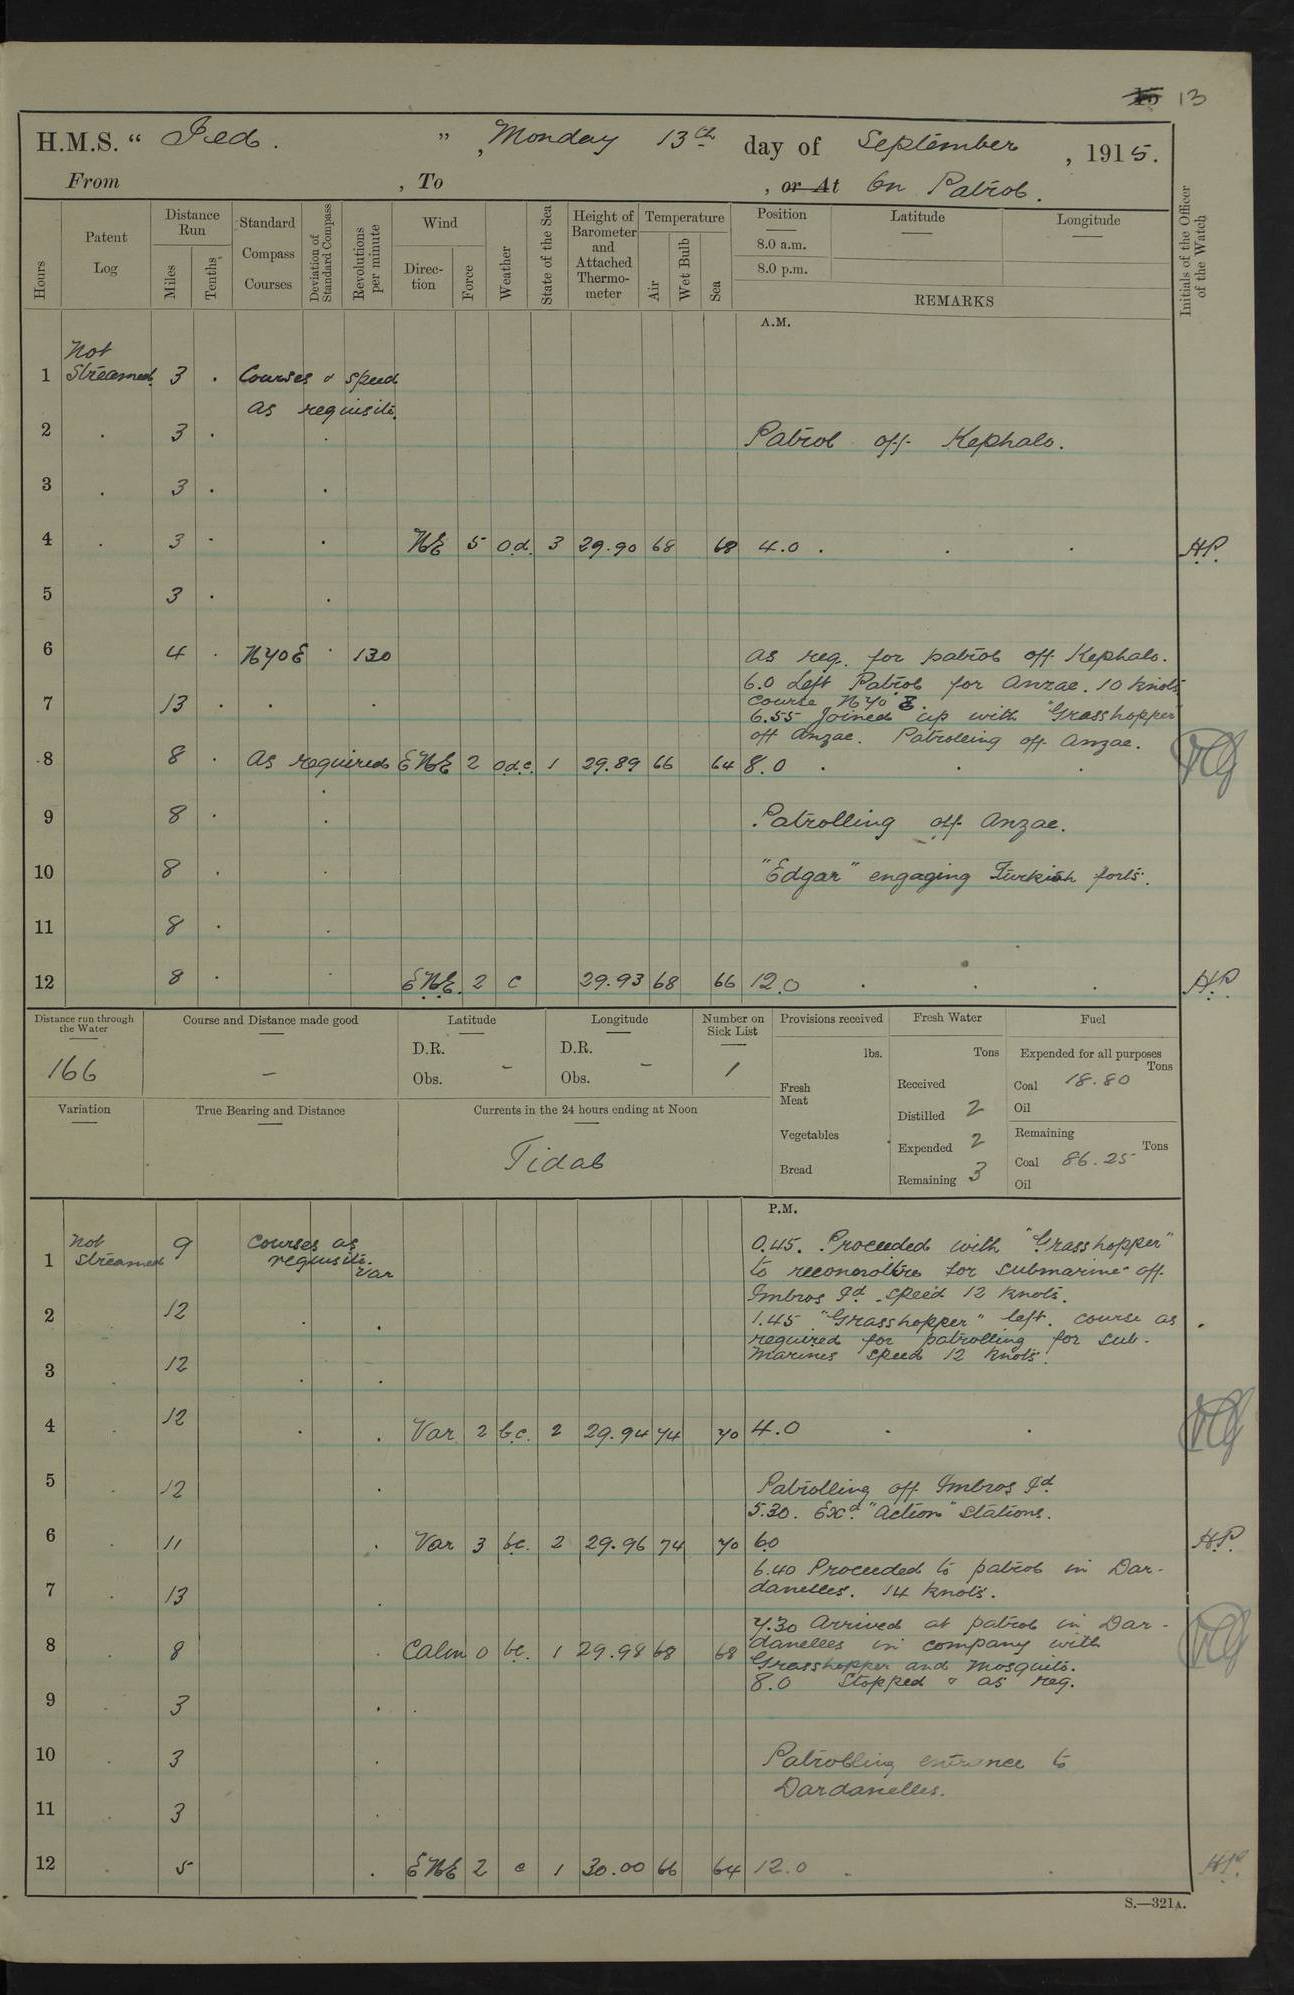 13
H.M.S. " Jed. " , Monday 13th day of September , 1915.
From , To , or At On Patrol.
Hours
Patent Log
Distance Run
Miles
Tenths
Standard Compass Courses
Deviation of Standard Compass
Revolutions per minute
Wind
Direc-tion
Force
Weather
State of the Sea
Height of Barometer and Attached Thermo-meter
Temperature
Air
Wet Bulb
Sea
Position Latitude Longitude
8.0 a.m.
8.0 p.m.
REMARKS
Initials of the Officer of the Watch
A.M.
Not
1 Streamed 3 . Courses & speed
as requisite.
2 . 3 . . Patrol off Kephalo.
3 . 3 . .
4 . 3 . . NE 5 o.d. 3 29.90 68 68 4.0 . . . H.P.
5 3 . .
6 4 . N70E . 130 as req. for patrol off Kephalo.
6.0 Left Patrol for Anzac. 10 knots
7 13 . . . . course N70E.
6.55 Joined up with "Grasshopper"
off Anzac. Patrolling off Anzac.
8 8 . As required ENE 2 o.d.c. 1 29.89 66 64 8.0 . . .
9 8 . . Patrolling off Anzac.
10 8 . . "Edgar" engaging Turkish forts.
11 8 . .
12 8 . . ENE. 2 c 29.93 68 66 12.0 . . . H.P.
Distance run through the Water
166
Course and Distance made good
-
Latitude
D.R.
Obs. -
Longitude
D.R.
Obs. -
Number on Sick List
1
Provisions received
lbs.
Fresh Meat
Vegetables
Bread
Fresh Water
Tons
Received
Distilled 2
Expended 2
Remaining 3
Fuel
Expended for all purposes
Tons
Coal 18.80
Oil
Remaining
Tons
Coal 86.25
Oil
Variation
True Bearing and Distance
Currents in the 24 hours ending at Noon
Tidal
P.M.
1 Not streamed 9 Courses as requisite. Var 0.45. Proceeded with "Grasshopper"
to reconnoitre for submarine off
Imbros Id. speed 12 knots.
2 12 . . 1.45 "Grasshopper" left. course as
required for patrolling for sub-
marines speed 12 knots.
3 12 . .
4 . 12 . . Var 2 b.c. 2 29.94 74 70 4.0 . .
5 . 12 . Patrolling off Imbros Id.
5.30. Exd. "Action" Stations.
6 . 11 . Var 3 bc. 2 29.96 74 70 6.0 H.P.
6.40 Proceeded to patrol in Dar-
7 . 13 . danelles. 14 knots.
7.30 Arrived at patrol in Dar-
8 . 8 . Calm 0 bc. 1 29.98 68 68 danelles in company with
Grasshopper and Mosquito.
8.0 Stopped & as req.
9 3 . .
10 . 3 . Patrolling entrance to
Dardanelles.
11 . 3 .
12 . 5 . ENE 2 c 1 30.00 66 64 12.0 . . H.P.
S.—321A.